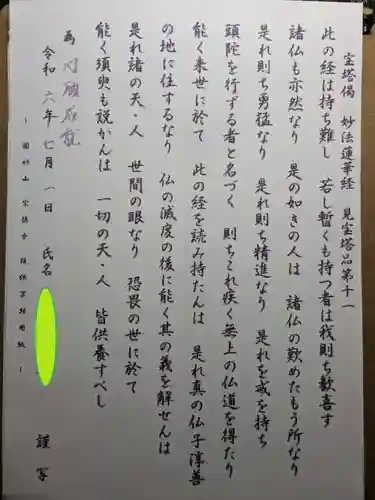 宝塔偈　妙法蓮華経　見宝塔品第十一
此の経は持ち難し　若し暫くも持つ者は我則ち歓喜す
諸仏も亦然なり　是の如きの人は　諸仏の歎めたもう所なり
是れ則ち勇猛なり　是れ則ち精進なり　是れを戒を持ち
頭陀を行ずる者と名づく　則ちこれ疾く無上の仏道を得たり
能く来世に於て　此の経を読み持たんは　是れ真の仏子淳善
の地に住するなり　仏の滅度の後に能く其の義を解せんは
是れ諸の天・人　世間の眼なり　恐畏の世に於て
能く須臾も説かんは　一切の天・人　皆供養すべし
為　心願成就
令和　六年　七月　一日　氏名　謹写